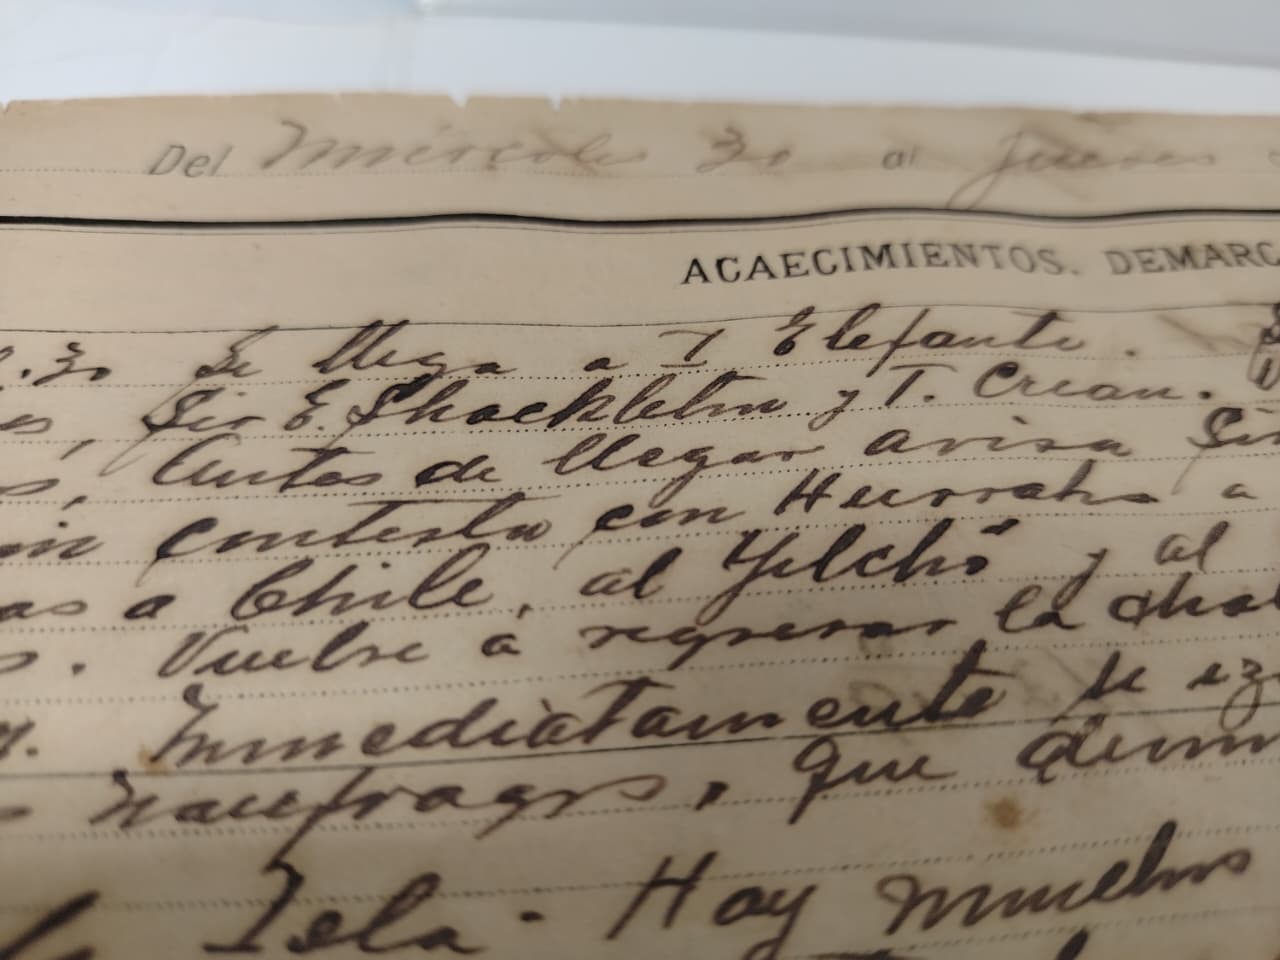 Del Miércoles 30 al Jueves
ACAECIMIENTOS. DEMARC
.30 Se llega a I Elefante.
es, Sir E. Shackleton y T. Crean.
s, Antes de llegar avisa Sir
contesta con Hurrahs a
as a Chile, al Yelcho y al
s. Vuelve á regresar la chal
Inmediatamente se iz
s náufragos, que
Isla. Hay muchos